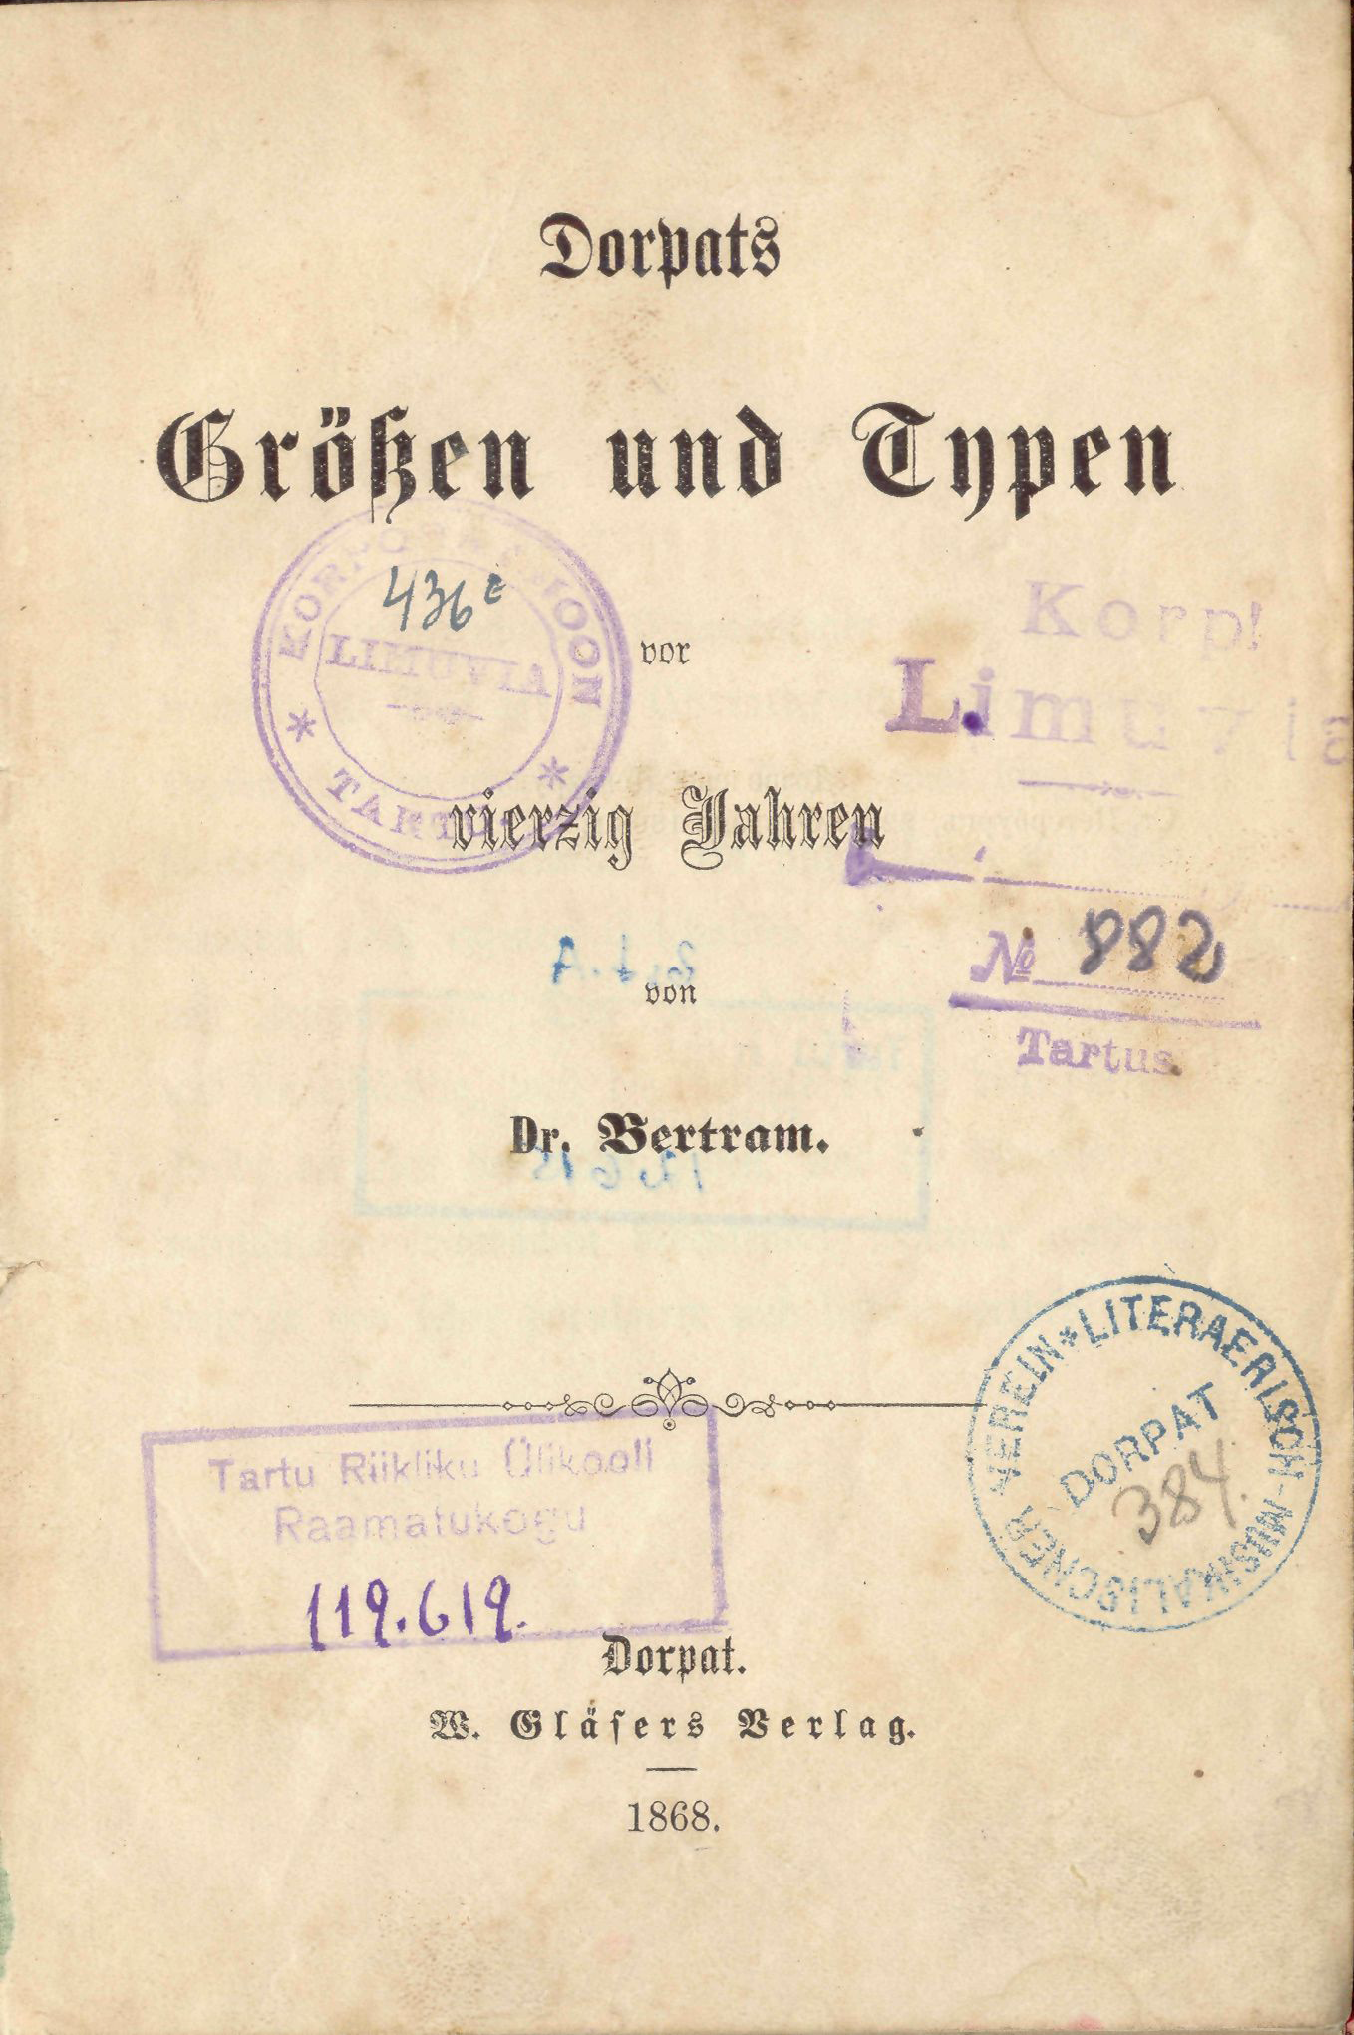 Dorpats
Größen und Typen
KORPORATSIOON
436 E
LIMUVIA
* TARTUS *
vor
Korp!
Limuvia
vierzig Jahren
№ 882
von
Tartus.
Dr. Bertram.
LITERAERISCH-MUSIKALISCHER VEREIN *
DORPAT
384.
Tartu Riikliku Ülikooli
Raamatukogu
119.619.
Dorpat.
W. Gläsers Verlag.
1868.